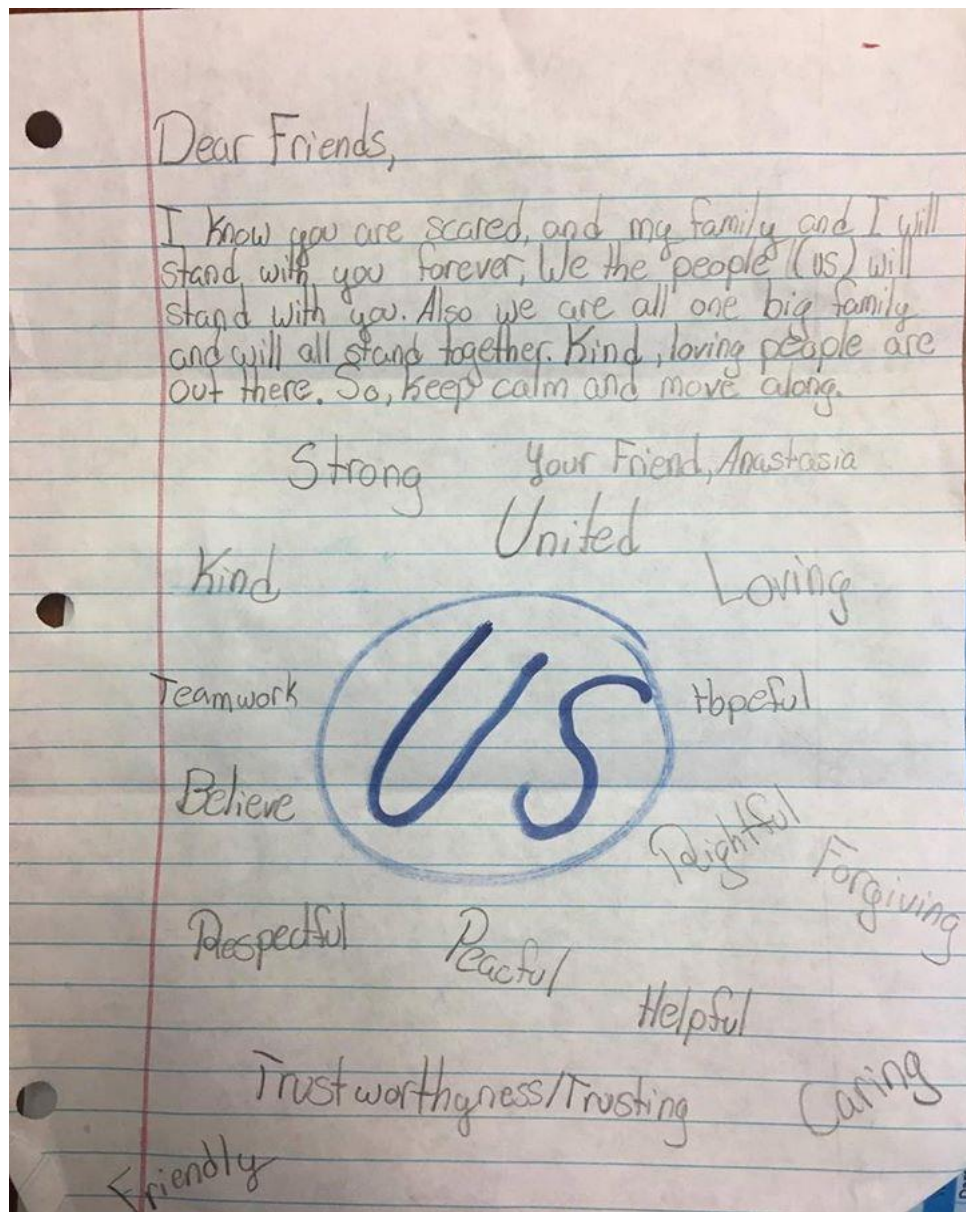 Dear Friends,
I know you are scared, and my family and I will
stand with you forever, We the people (us) will
stand with you. Also we are all one big family
and will all stand together. Kind, loving people are
out there. So, keep calm and move along.
Strong Your Friend, Anastasia
United
Kind Loving
US
Teamwork Hopeful
Believe
Rightful Forgiving
Respectful Peacful
Helpful
Trustworthyness/Trusting Caring
Friendly